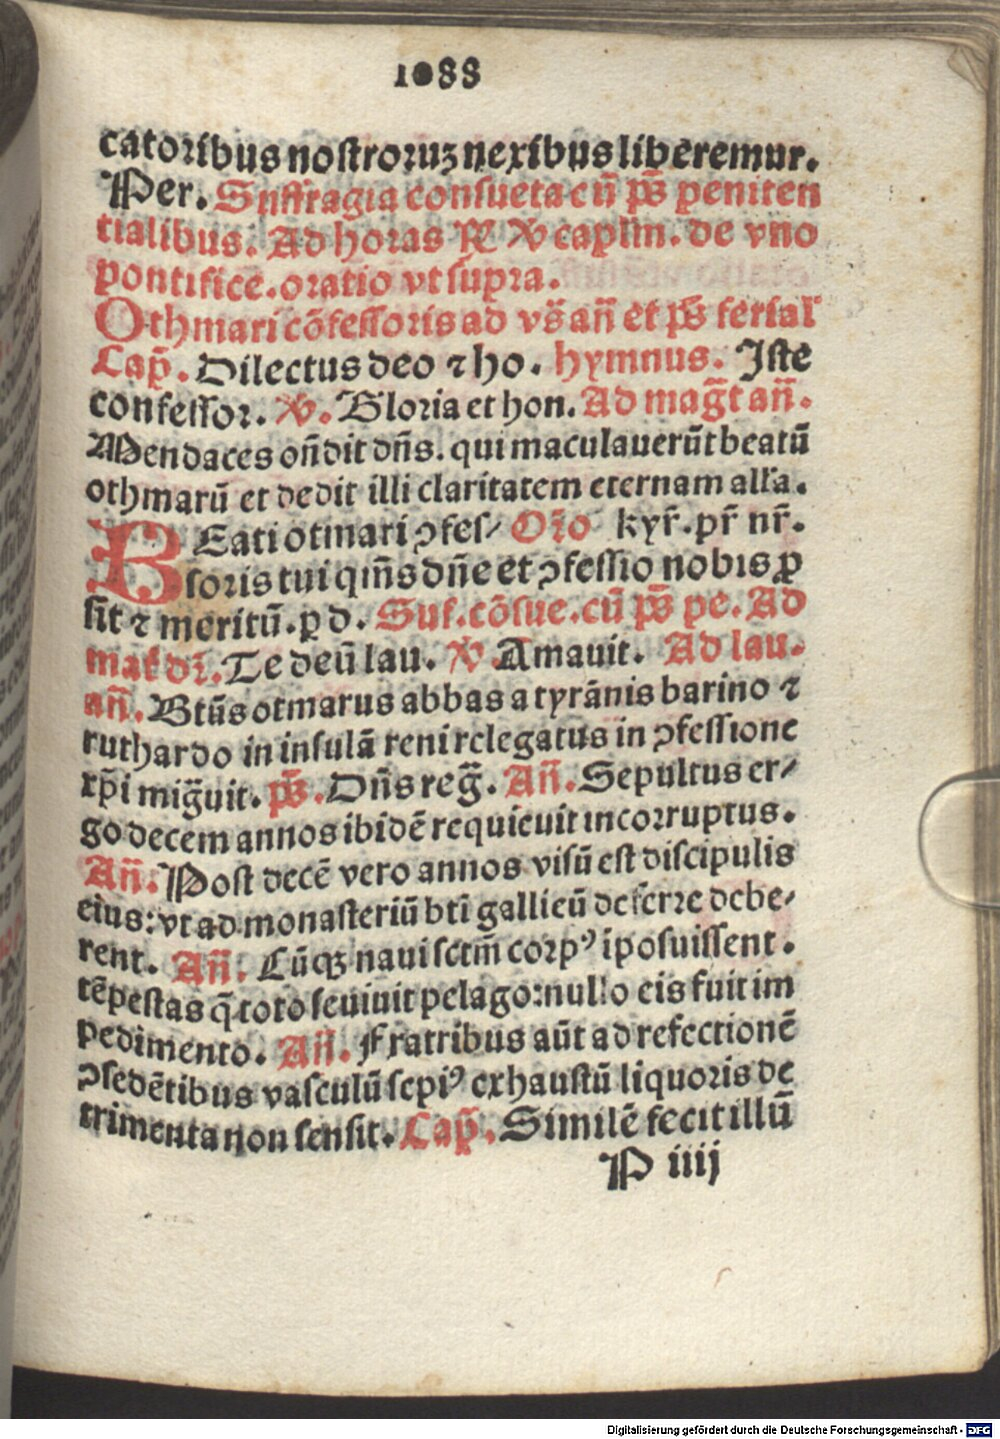 1088
catoribus nostroruꝫ nexibus liberemur.
Per. Suffragia consueta cū p̄s peniten
tialibus. Ad horas ℟ ℣ capl̄m. de vno
pontifice. oratio vt supra.
Othmari cōfessoris ad vs̄ an̄ et p̄s ferial'
Cap̄. Dilectus deo ⁊ ho. hymnus. Iste
confessor. ℣. Gloria et hon. Ad maḡt an̄.
Mendaces on̄dit dn̄s. qui maculauerūt beatū
othmarū et dedit illi claritatem eternam all'a.
BEati otmari ꝯfes/ Or̄o kyr̄. pr̄ nr̄.
soris tui qm̄s dn̄e et ꝯfessio nobis ꝓ
sit ⁊ meritū. ꝑ d. Suf. cōsue. cū p̄s pe. Ad
mat' dr̄. Te deū lau. ℣. Amauit. Ad lau.
an̄. Btūs otmarus abbas a tyrānis barino ⁊
ruthardo in insulā reni relegatus in ꝯfessione
xp̄i miḡuit. p̄s. Dn̄s reḡ. An̄. Sepultus er/
go decem annos ibidē requieuit incorruptus.
An̄. Post decē vero annos visū est discipulis
eius: vt ad monasteriū bti̅ gallicū deferre debe/
rent. An̄. Cūqꝫ naui sctm̄ corpꝰ īposuissent.
tēpestas q̄ toto seuiuit pelago: nullo eis fuit im
pedimento. An̄. Fratribus aūt ad refectionē
ꝯsedētibus vasculū sepiꝰ exhaustū liquoris de
trimenta non sensit. Cap̄. Similē fecit illū
P iiij
Digitalisierung gefördert durch die Deutsche Forschungsgemeinschaft - DFG